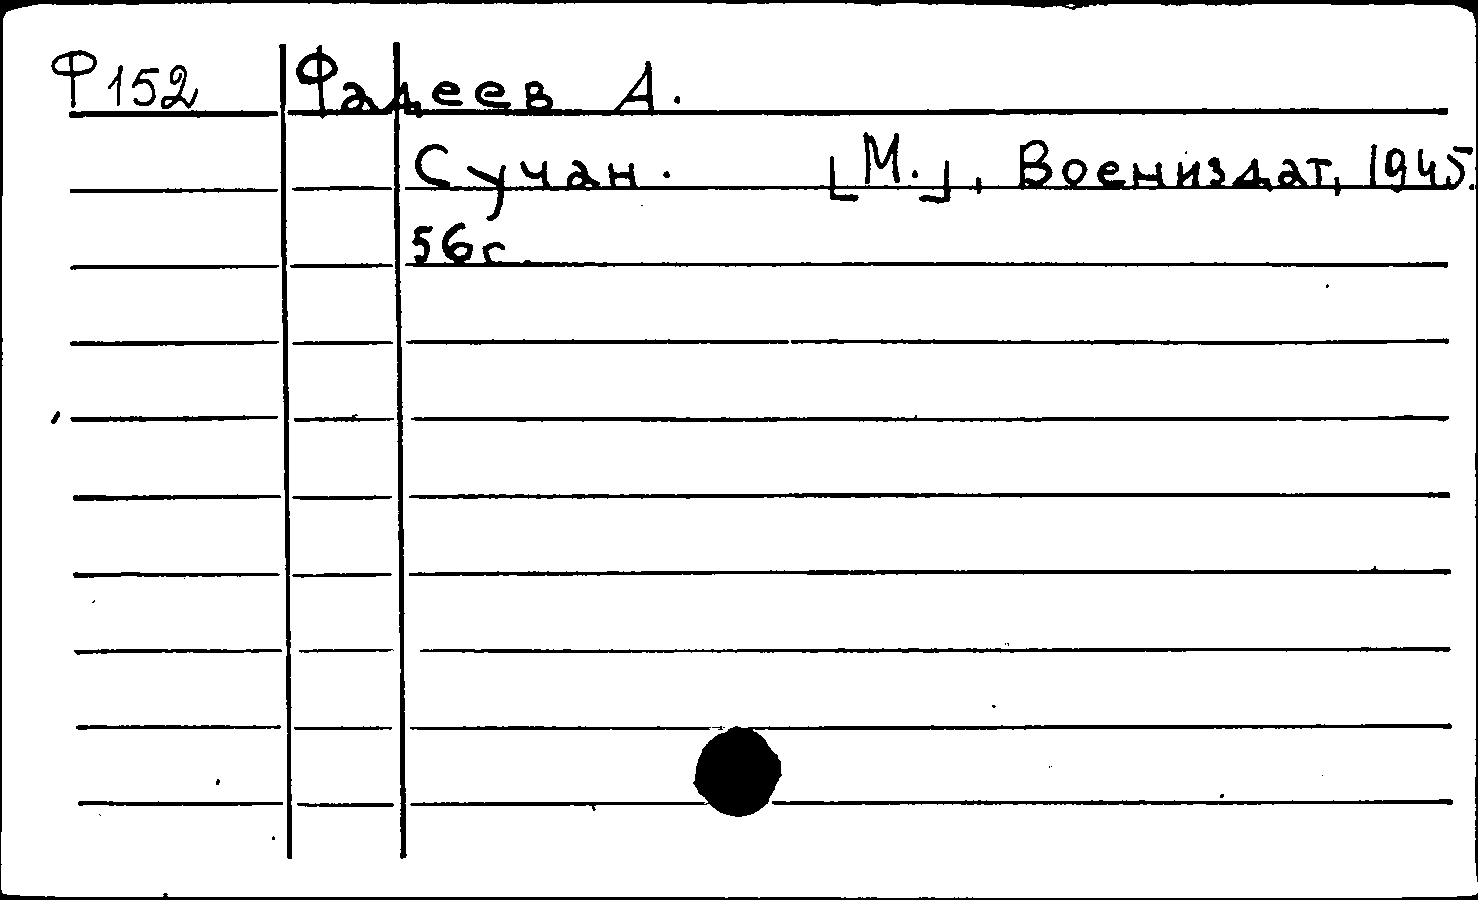 Ф152 Фадеев А.
Сучан. [М.], Воениздат, 1945.
56с.